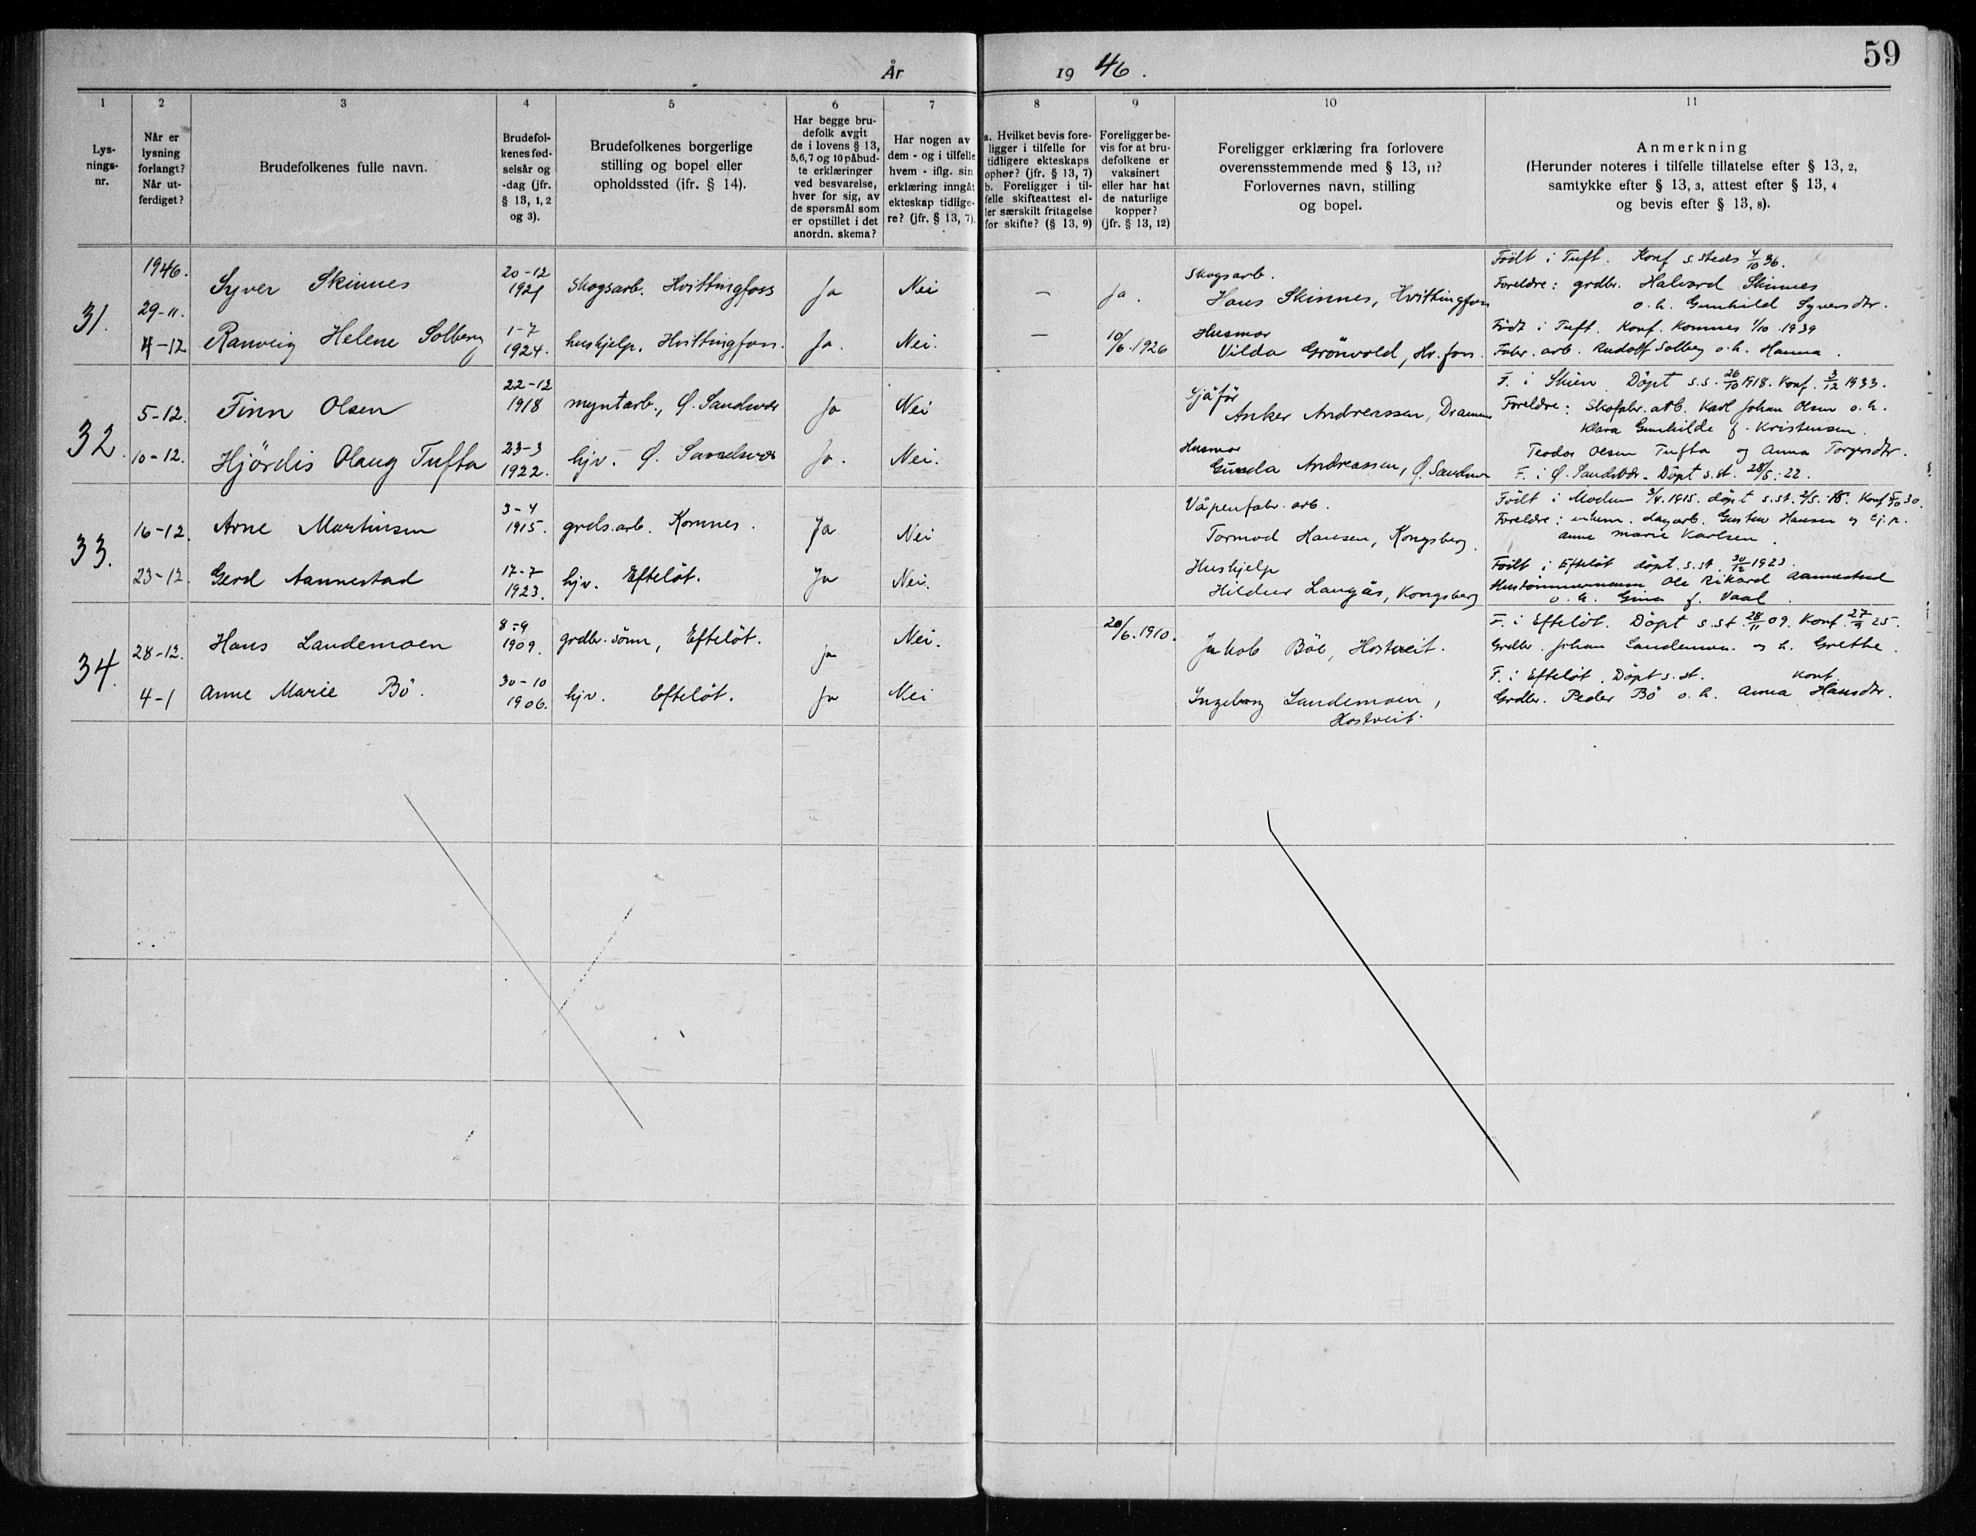 59
År 1946.
1 2 3 4 5 6 7 8 9 10 11
Lys-
nings-
nr.
Når er
lysning
forlangt?
Når ut-
ferdiget?
Brudefolkenes fulle navn.
Brudefol-
kenes fød-
selsår og
-dag (jfr.
§ 13, 1, 2
og 3).
Brudefolkenes borgerlige
stilling og bopel eller
opholdssted (jfr. § 14).
Har begge bru-
defolk avgit
de i lovens § 13,
5,6,7 og 10 påbud-
te erklæringer
ved besvarelse,
hver for sig, av
de spørsmål som
er opstillet i det
anordn. skema?
Har nogen av
dem - og i tilfelle
hvem - iflg. sin
erklæring inngåt
ekteskap tidlige-
re? (jfr. § 13, 7).
a. Hvilket bevis fore-
ligger i tilfelle for
tidligere ekteskaps
ophør? (jfr. § 13, 7)
b. Foreligger i til-
felle skifteattest el-
ler særskilt fritagelse
for skifte? (§ 13, 9)
Foreligger be-
vis for at bru-
defolkene er
vaksinert
eller har hat
de naturlige
kopper?
(jfr. § 13, 12)
Foreligger erklæring fra forlovere
overensstemmende med § 13, 11?
Forlovernes navn, stilling
og bopel.
Anmerkning
(Herunder noteres i tilfelle tillatelse efter § 13, 2,
samtykke efter § 13, 3, attest efter § 13, 4
og bevis efter § 13, 8).
31.
1946.
29-11.
4-12
Syver Skinnes
20-12
1921
Skogsarb. Hvittingfoss
Ja
Nei
—
Ja.
Skogsarb.
Hans Skinnes, Hvittingfoss
Født i Tuft. Konf. s. steds 4/10 36.
Foreldre: grdbr. Halvard Skinnes
o.h. Gunhild Syversdtr.
Ranveig Helene Solberg
1-7
1924.
hushjelp, Hvittingfoss.
Ja.
Nei.
—
10/6.1926
Husmor
Vilda Grönvold, Hv.foss.
Født i Tuft. Konf. Komnes 1/10.1939
Fabr. arb. Rudolf Solberg o.h. Hanna.
32.
5-12.
10-12.
Finn Olsen
22-12
1918
myntarb., Ø. Sandsvær
Ja
Nei
Sjåför
Anker Andreassen, Drammen
F. i Skien. Döpt s.s. 26/10 1918. Konf. 3/12 1933.
Foreldre: Skofabr.arb. Karl Johan Olsen o.h.
Klara Gunhilde f. Kristensen.
Hjördis Olaug Tufta
23-3
1922.
hjv. Ø. Sandsvær
Ja.
Nei.
Husmor
Gunda Andreassen, Ø. Sandsvær
Teodor Olsen Tufta og Anna Torgersdtr.
F. i Ø. Sandsvær. Döpt s.st. 28/5.22.
33.
16-12.
23-12
Arne Martinsen
3-4
1915.
grds.arb. Komnes.
Ja
Nei
Våpenfabr. arb.
Tormod Hansen, Kongsberg.
Født i Modum 3/4.1915. döpt s.st. 2/5.15. Konf. 30.
Foreldre: dagarb. Gustav Hansen og
Anne Marie Karlsen.
Gerd Aannestad
17-7
1923.
hjv. Efteløt.
Ja
Nei.
Hushjelp
Hildur Langås, Kongsberg
Født i Efteløt döpt s.st. 30/12 1923.
Hustömmermann Ole Rikard Aannestad
o.h. Gina f. Vaal.
34.
28-12.
4-1
Hans Landemoen
8-9
1909.
grdbr. sønn, Efteløt.
ja
Nei.
20/6.1910.
Jakob Böe, Hostveit.
F. i Efteløt. Döpt s.st. 28/11 09. Konf. 27/9 25.
Grdbr. Johan Landemoen og h. Grethe.
Anne Marie Bö.
30-10
1906.
hjv. Efteløt.
Ja
Nei
Ingeborg Landemoen,
Hostveit.
F. i Efteløt. Döpt s.st. Konf.
Grdbr. Peder Bö o.h. Anna Hansdtr.